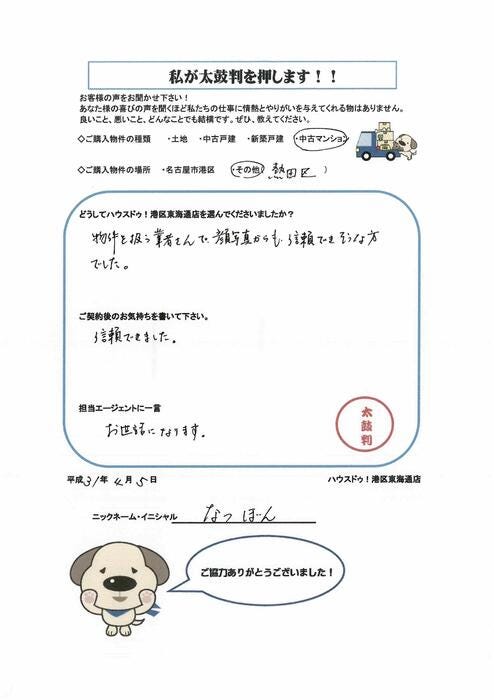 私が太鼓判を押します！！
お客様の声をお聞かせ下さい！
あなた様の喜びの声を聞くほど私たちの仕事に情熱とやりがいを与えてくれる物はありません。
良いこと、悪いこと、どんなことでも結構です。ぜひ、教えてください。
◇ご購入物件の種類 ・土地 ・中古戸建 ・新築戸建 ・中古マンション
◇ご購入物件の場所 ・名古屋市港区 ・その他（ 熱田区 ）
どうしてハウスドゥ！港区東海通店を選んでくださいましたか？
物件を扱う業者さんで、顔写真からも信頼できそうな方
でした。
ご契約後のお気持ちを書いて下さい。
信頼できました。
担当エージェントに一言
お世話になります。
太鼓判
平成31年4月5日 ハウスドゥ！港区東海通店
ニックネーム・イニシャル なつぽん
ご協力ありがとうございました！